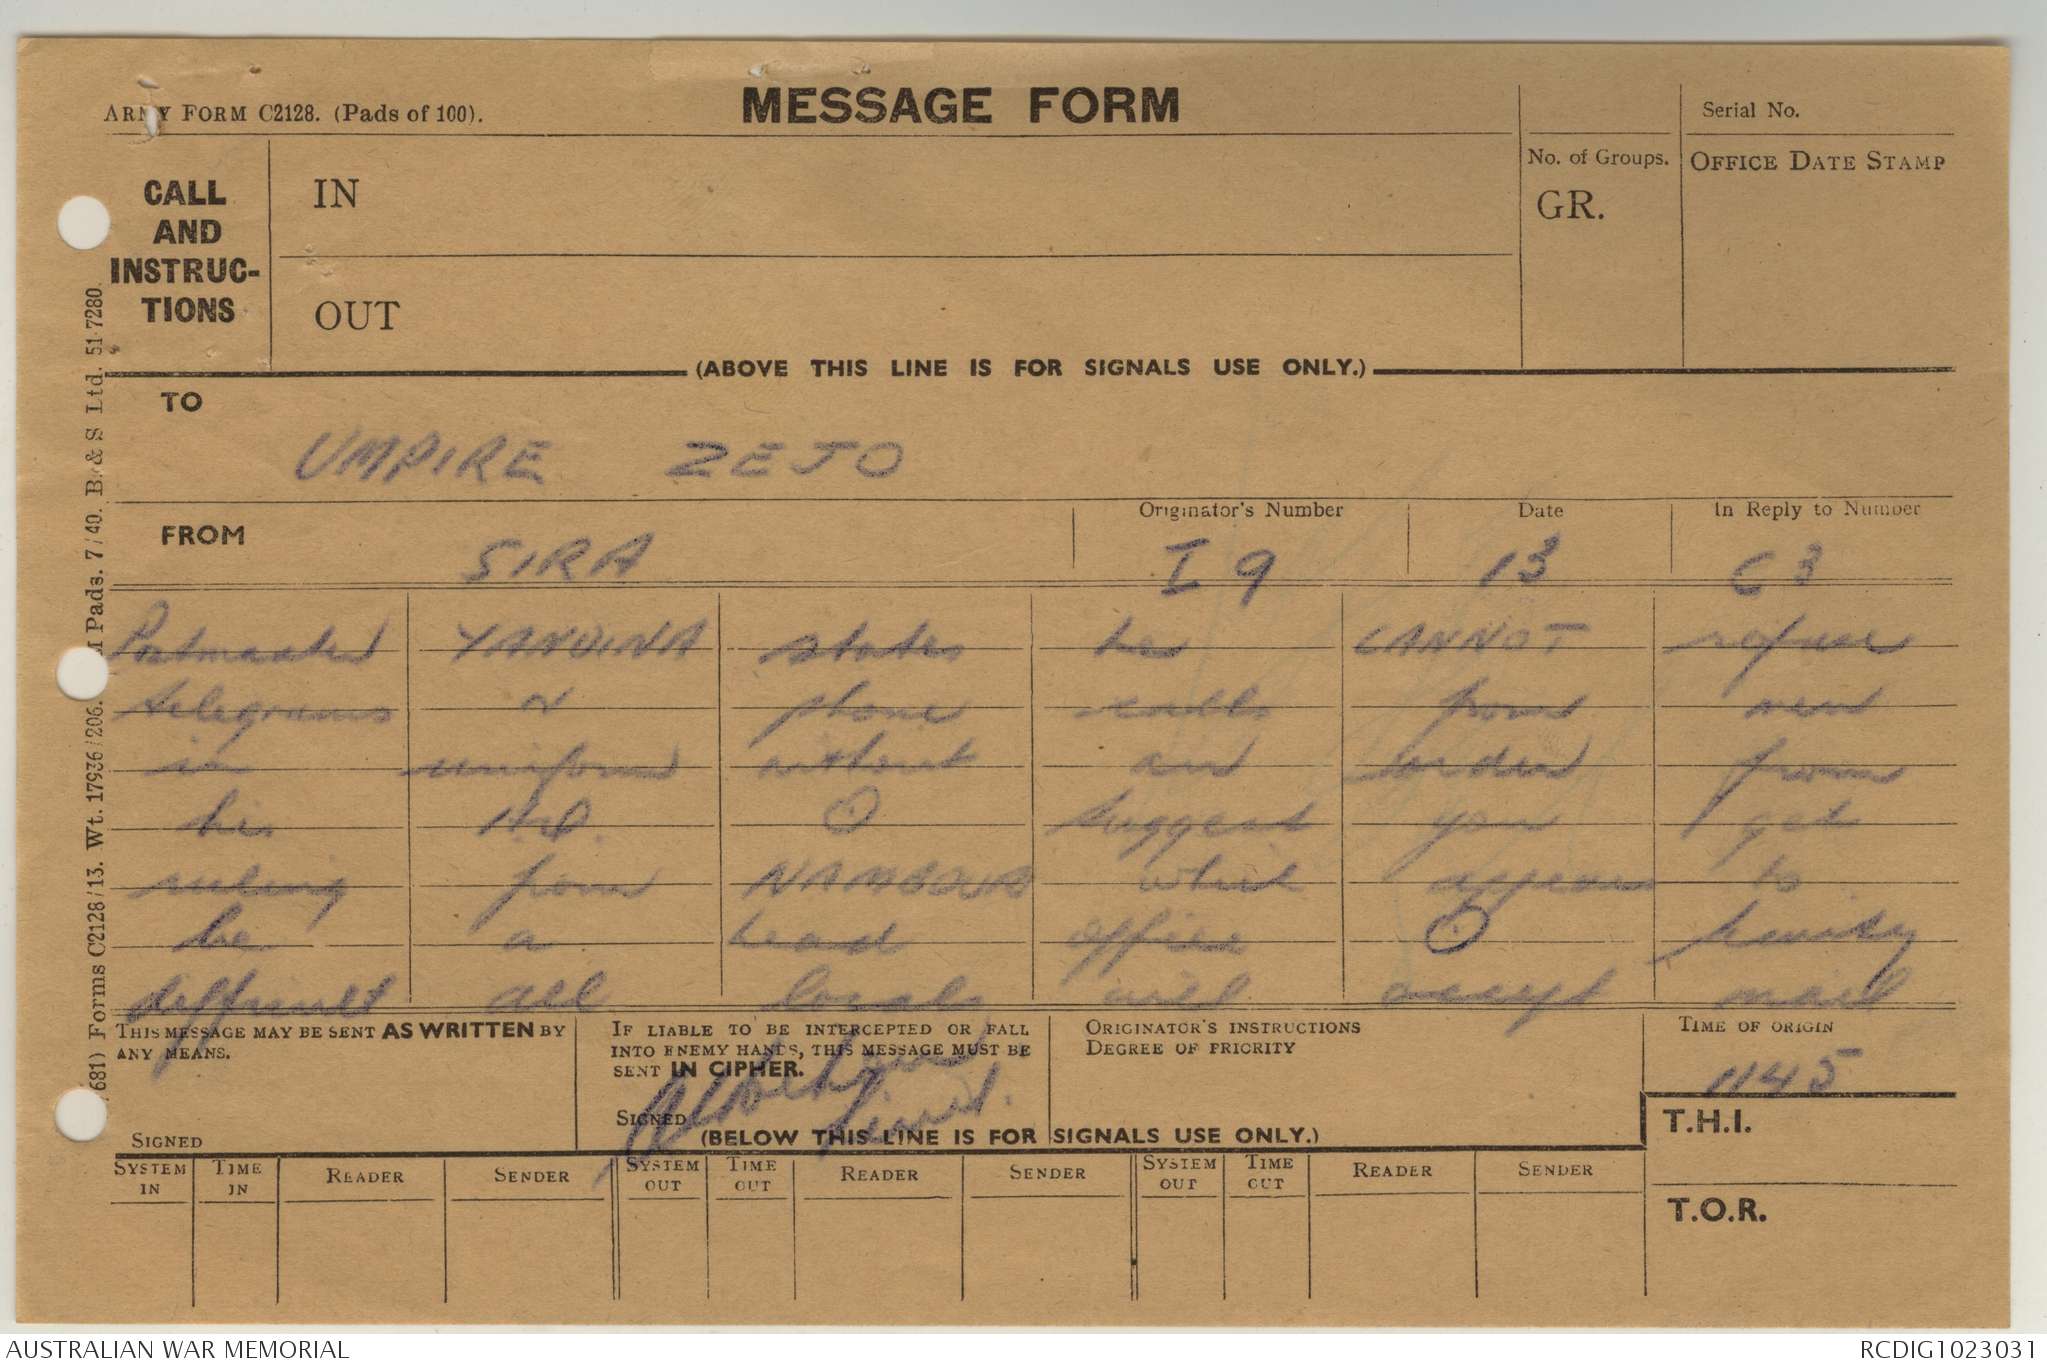 ARMY FORM C2128. (Pads of 100).
MESSAGE FORM
Serial No.
No. of Groups.
GR.
OFFICE DATE STAMP
CALL
AND
INSTRUC-
TIONS
IN
OUT
(ABOVE THIS LINE IS FOR SIGNALS USE ONLY.)
TO
UMPIRE ZEJO
FROM
SIRA
Originator's Number
I 9
Date
13
In Reply to Number
C 3
Postmaster YANDINA states he CANNOT refuse
telegrams or phone calls from men
in uniform without an order from
his H.Q. O Suggest you get
ruling from NAMBOUR which appears to
be a head office O Security
difficult all locals will accept mail
THIS MESSAGE MAY BE SENT AS WRITTEN BY
ANY MEANS.
SIGNED
IF LIABLE TO BE INTERCEPTED OR FALL
INTO ENEMY HANDS, THIS MESSAGE MUST BE
SENT IN CIPHER.
SIGNED
Lieut.
ORIGINATOR'S INSTRUCTIONS
DEGREE OF PRIORITY
TIME OF ORIGIN
1145
T.H.I.
(BELOW THIS LINE IS FOR SIGNALS USE ONLY.)
SYSTEM IN
TIME IN
READER
SENDER
SYSTEM OUT
TIME OUT
READER
SENDER
SYSTEM OUT
TIME OUT
READER
SENDER
T.O.R.
681) Forms C2128/13. Wt. 17936/206. M Pads. 7/40. B. & S Ltd. 51-7280.
AUSTRALIAN WAR MEMORIAL
RCDIG1023031